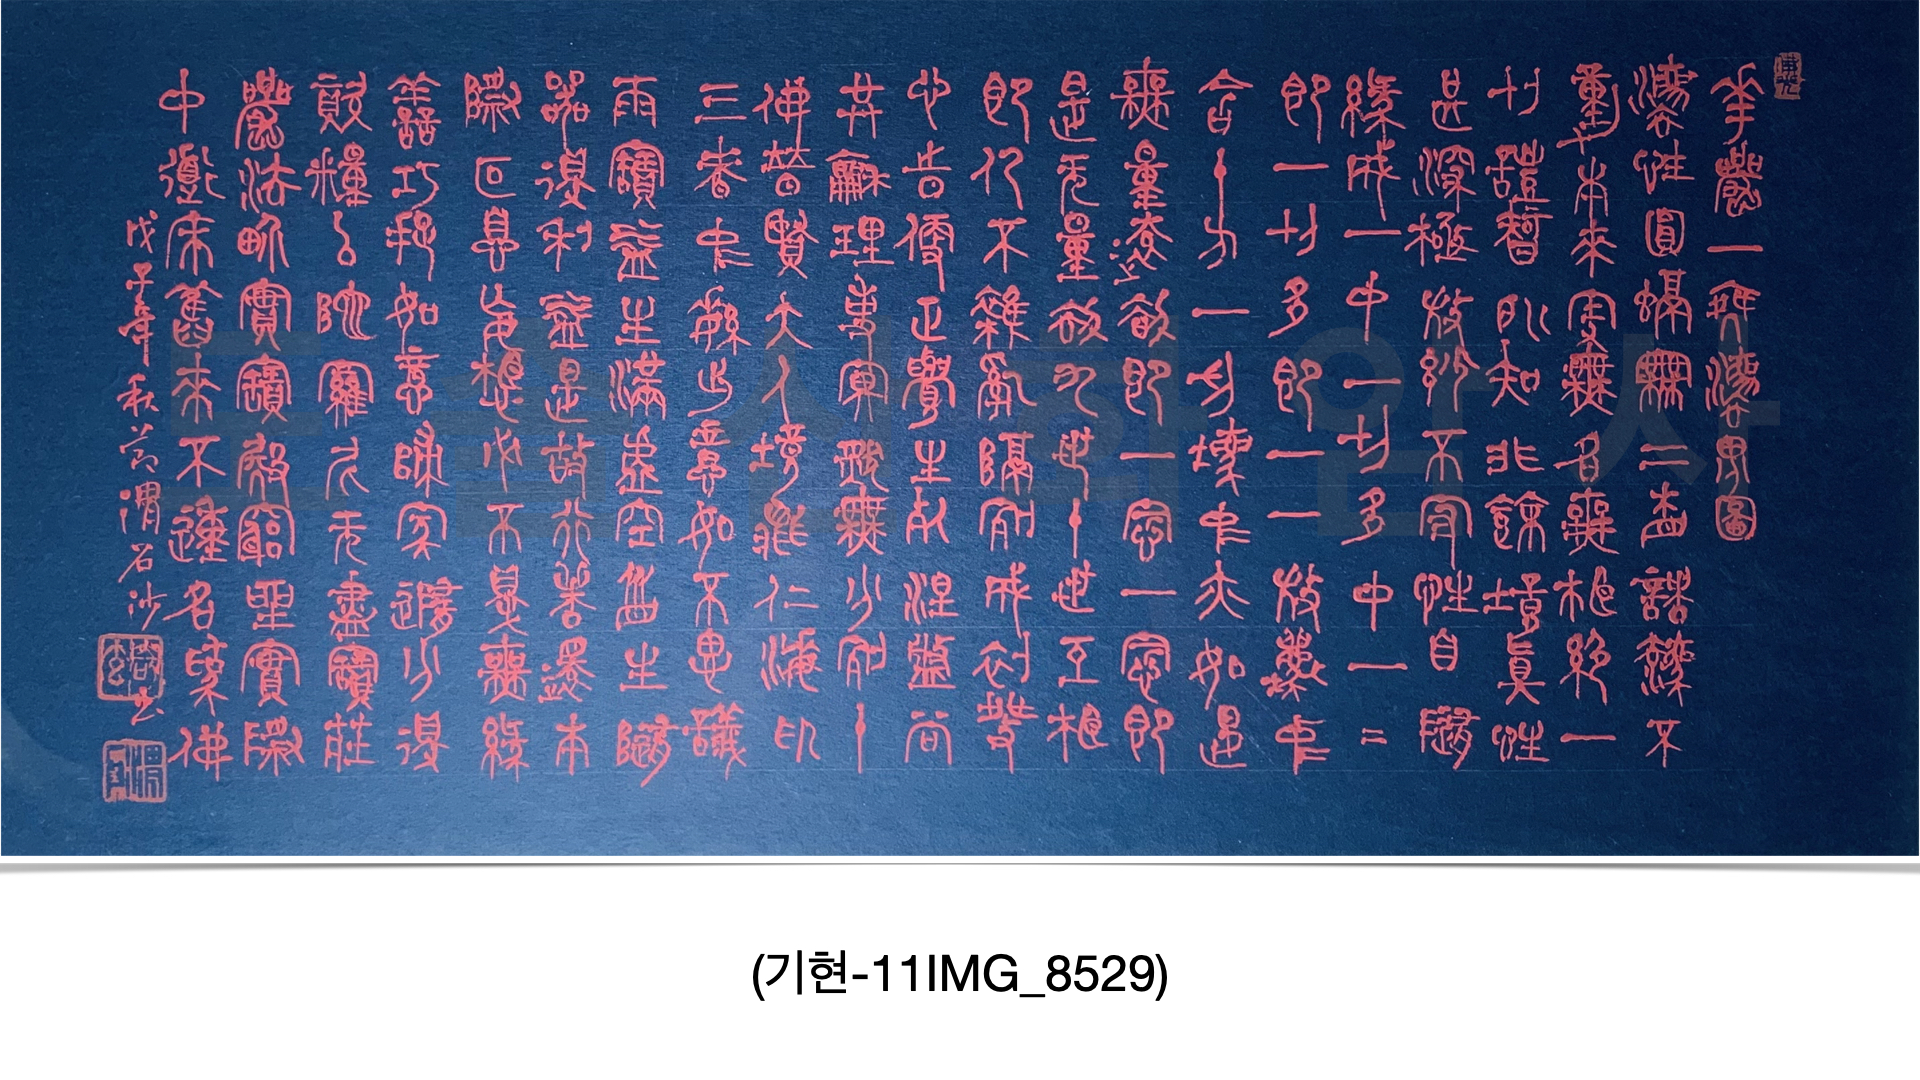 華嚴一乘法界圖
法性圓融無二相諸法不
動本來寂無名無相絶一
切證智所知非餘境眞性
甚深極微妙不守自性隨
緣成一中一切多中一〻
卽一切多卽一一微塵中
含十方一切塵中亦如是
無量遠劫卽一念一念卽
是无量劫九世十世互相
卽仍不雜亂隔別成初發
心時便正覺生死涅槃常
共和理事冥然無分別十
佛普賢大人境能仁海印
三昧中繁出意如不思議
雨寶益生滿虛空衆生隨
器得利益是故行者還本
際叵息妄想必不得無緣
善巧捉如意歸家隨分得
資糧以陀羅尼无盡寶莊
嚴法界實寶殿窮坐實際
中道床舊來不動名爲佛
戊子年秋 渭石沙
(기현-11IMG_8529)